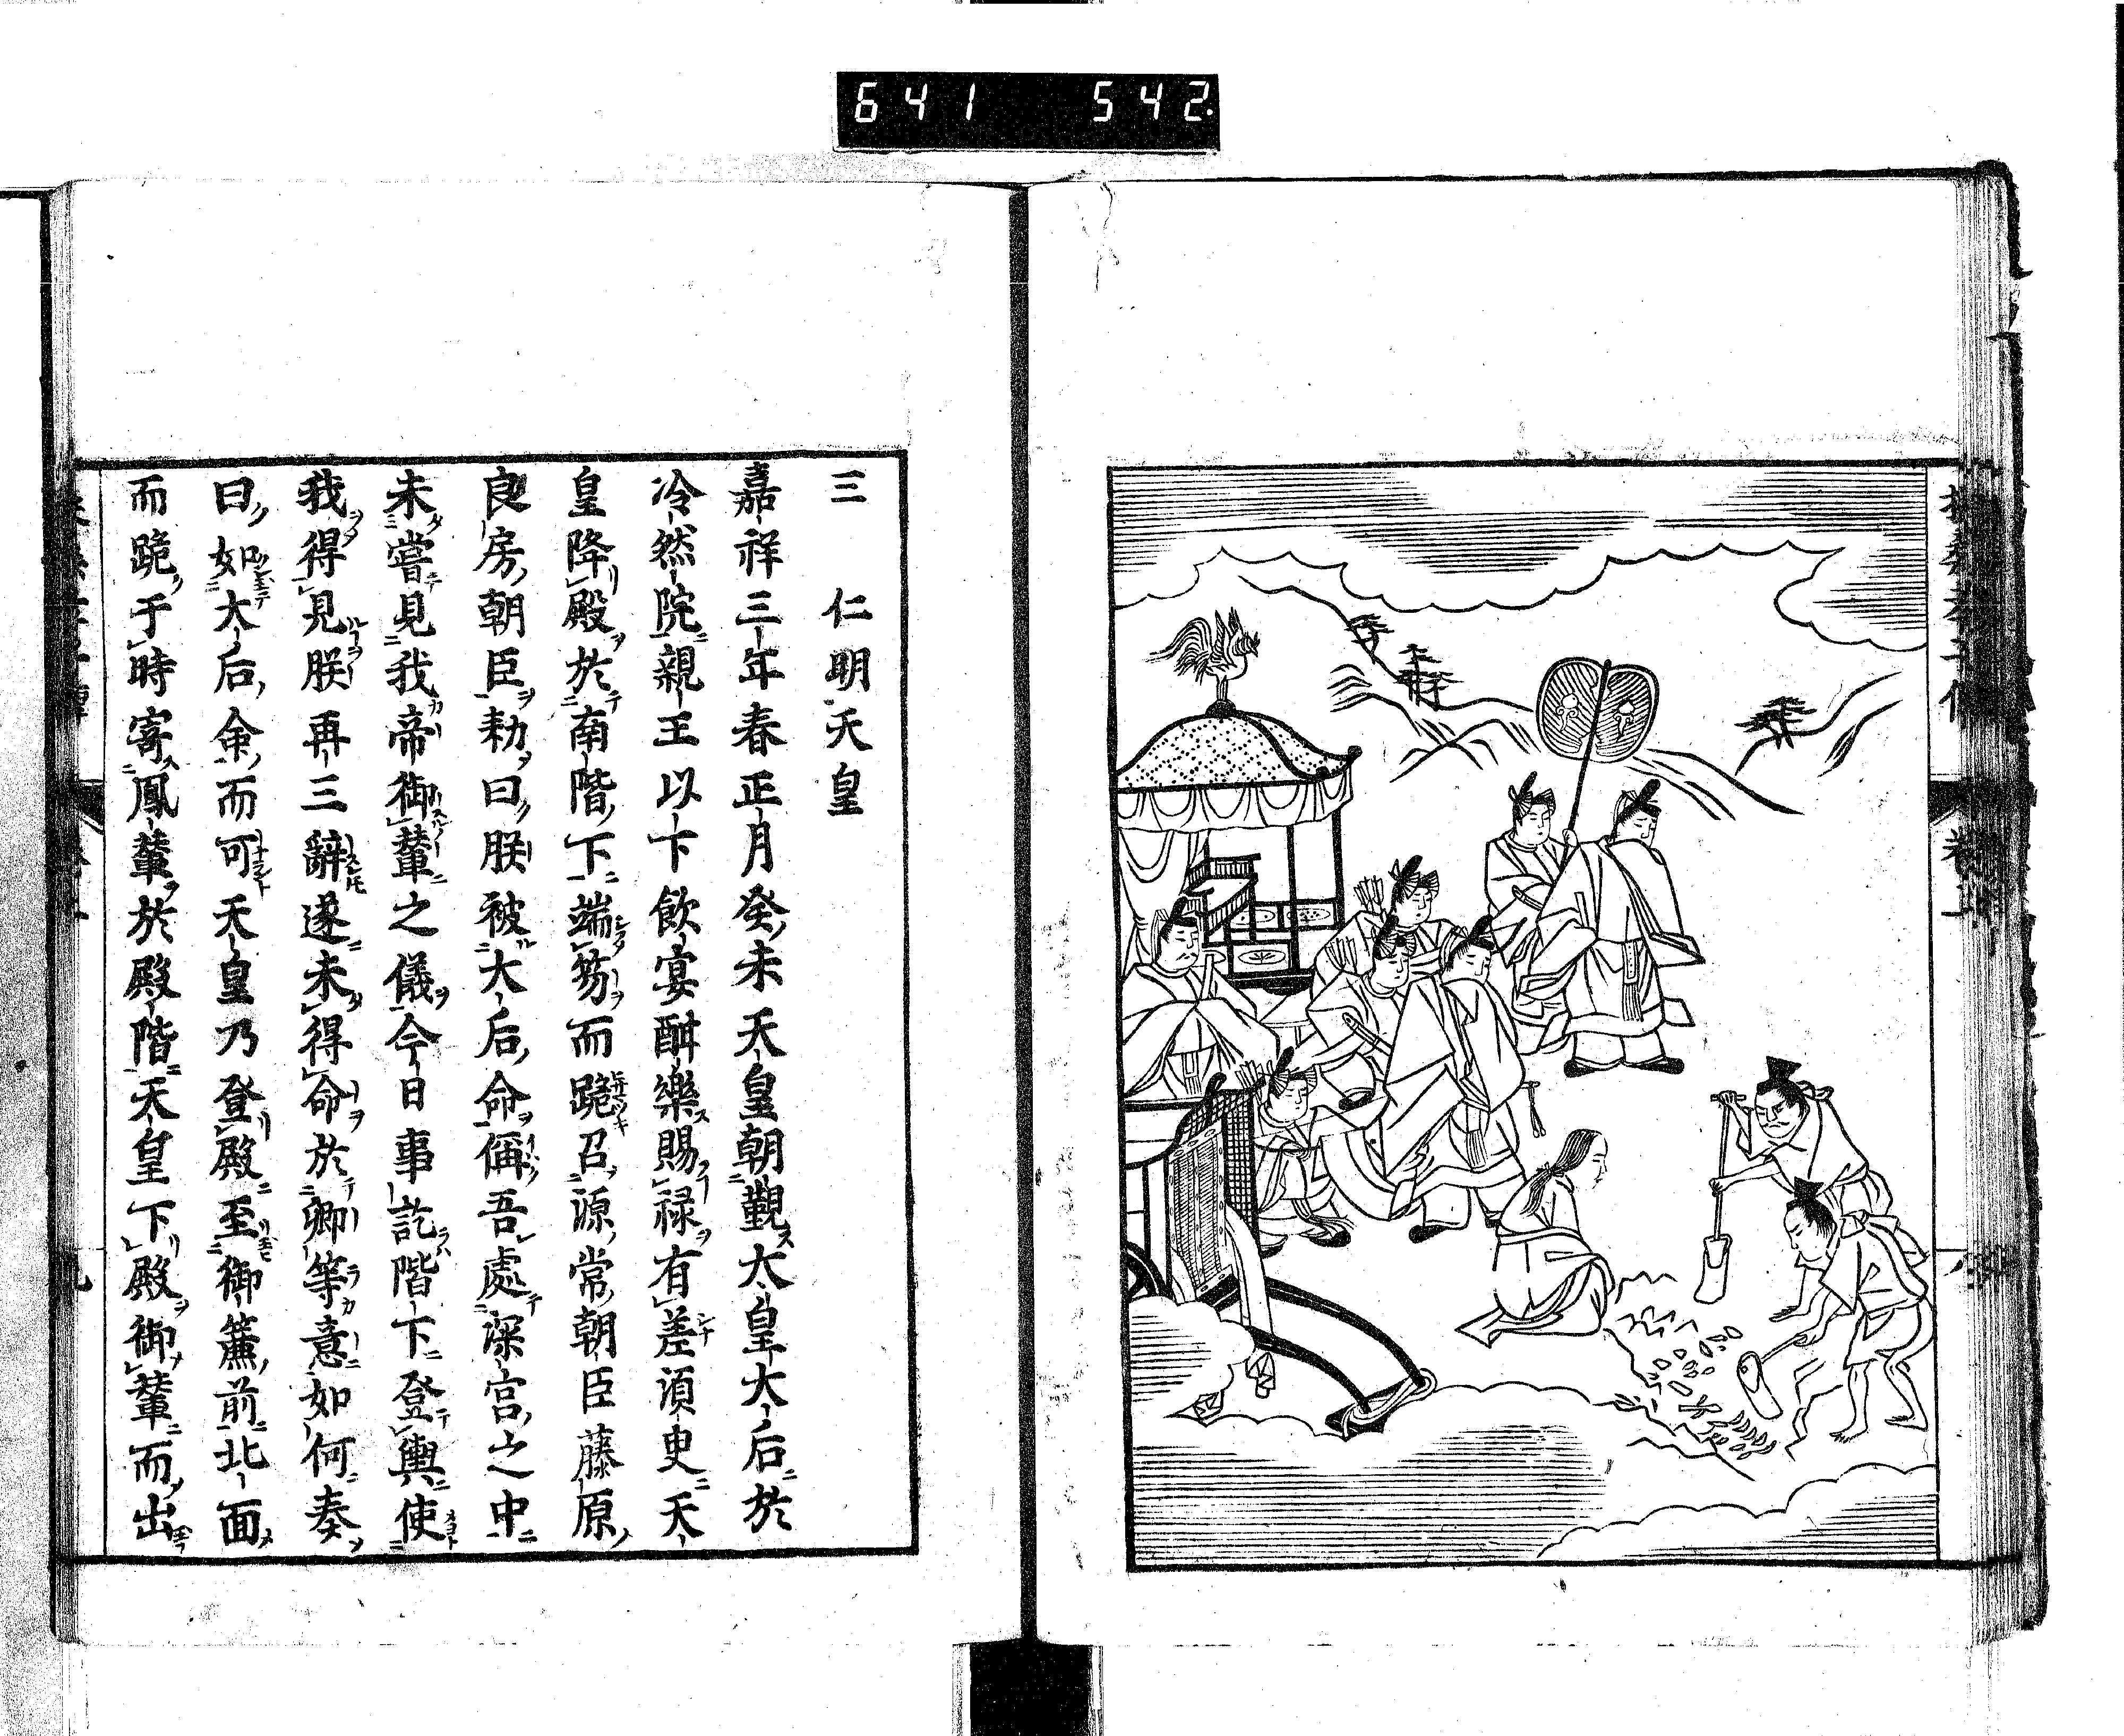 641 542
三 仁明天皇
嘉祥三年春正月癸未天皇朝覲太皇大后於
冷然院親王以下飲宴酣樂賜禄有差須臾天
皇降殿於南階下端笏而跪召源常朝臣藤原
良房朝臣勅曰朕被大后命偁吾處深宮之中
未嘗見我帝御輦之儀今日事訖階下登輿使
我得見朕再三辭遂未得命於卿等意如何奏
曰如大后命而可天皇乃登殿至御簾前北面
而跪于時寄鳳輦於殿階天皇下殿御輦而出